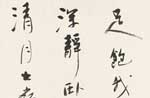 足飽我
深靜臥
清月出